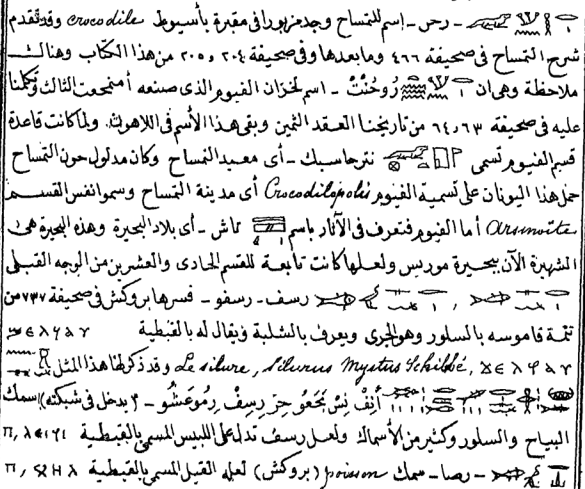 - رحس - إسم للتمساح وجد مزبورا فى مقبرة بأسيوط crocodile وقد تقدم
شرح التمساح فى صحيفة ٤٦٦ وما بعدها وفى صحيفة ٢٠٤ و ٢٠٥ من هذا الكتاب وهناك
ملاحظة وهى ان رُوحُنْتْ - اسم لخزان الفيوم الذى صنعه أمنمحعت الثالث وتكلمنا
عليه فى صحيفة ٦٣ و ٦٤ من تاريخنا العقد الثمين وبقى هذا الأسم فى اللاهون ولما كانت قاعدة
قسم الفيوم تسمى نترحاسبك - أى معبد التمساح وكان مدلول حون التمساح
حمل هذا اليونان على تسمية الفيوم Crocodilopolis أى مدينة التمساح وسموا نفس القسم
Arsinoïte أما الفيوم فتعرف فى الآثار باسم تاش - أى بلاد البحيرة وهذه البحيرة هى
الشهيرة الآن ببحيرة موريس ولعلها كانت تابعة للقسم الحادى والعشرين من الوجه القبلى
رسف - رسفو - فسرها بروكش فى صحيفة ٧٣٧ من
تتمة قاموسه بالسلور وهو الجرى ويعرف بالشلبة ويقال له بالقبطية
Le silure, Silurus Mystus Schilbé, وقد ذكر لنا هذا المثل
أَنِفْ نِسْ بَحَعُو حِرْ رِسِفْ رِمُوعَشُو - (يدخل فى شبكته) سمك
البياح والسلور وكثير من الأسماك ولعل رسف تدل على اللبيس المسمى بالقبطية
- رصا - سمك poisson (بروكش) لعله القيل المسمى بالقبطية